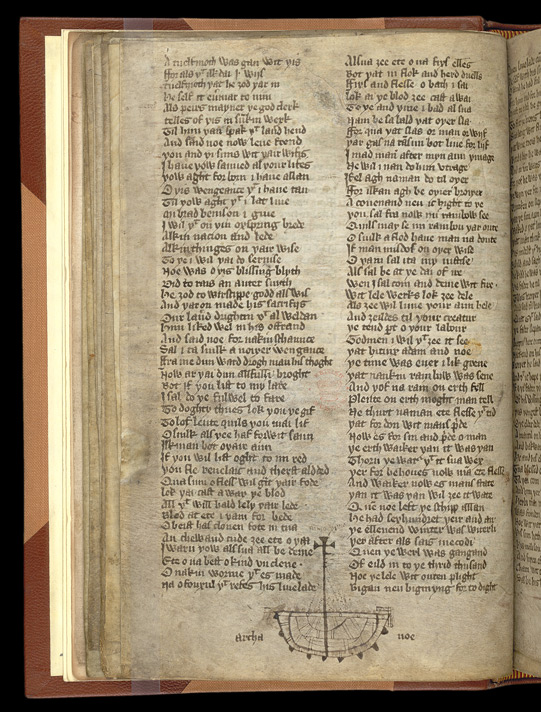 A tuelfmoth was gan wit yis
ffor als yᵗ al dai I wijs
tuelfmoth yat he zod yar in
He self it
Alo yeirs mayner ye god clerk
telles of yis in suilk werk
Til him yan spak yᵗ laud hend
And said noe now leue frend
you and yi suns wit yair wifis
I haue yow saued al your lifes
yow aght for-lorn i haue allan
O yis wengance yᵗ i haue tan
Til yow aght yᵗ i lat liue
an brad benison i giue
I wil yᵗ on yin ofspring brede
Alkin nacion and lede
Alkin thinges on yair wise
To ye i wil yai do seruise
Noe was o yis blissing blyth
Did to rais an auter suith
He zod to wirscippe godd al wis
And yaron made his sacrifijs
Our laud drightin yᵗ al weldand
Him liked wel in his offrand
And said noe for nakin schaunce
Sal i ta suilk a noyer wengance
ffra me dun ward drogh man his thoght
Now ar yai dun all-fulli broght
Bot if you list to my lare
I sal do ye fulwel to fare
To doghty thues lok you ye gif
To lof leute quils you mai lif
O suilk als yee haf forwit sain
Ilkman bot oyair ain
If you wil list oght to mi red
you fle reuelaic and theft al ded
Quasum o fless wil gift yair fode
Lok yai cast awar ye blod
All yᵗ will hald lely yair lede
Blod at ete i yam for-bede
O beist has clouen fote in tua
An cheuand cude zee ete o yaa
I warn yow als sua all be deme
Ete o na best o kind unclene
O nakin worme yᵗ es made
Na o fouxul yᵗ refes his liuelade
Alsua zee ete o na fixs elles
Bot yat in flok and herd duells
Ffixs and flesse o bath i sai
Lok in ye blod zee cast awai
To ye and yine i bad alsua
Nam be sa bald yat oyer sla
ffor qua yat slas or man or wijf
yar gas na ransun bot liue for lijf
I mad man after myn ain ymage
He wil i man do him vtrage
Ilk agh na man do til oyer
ffor alkan agh be oyer broyer
A couenand neu i e hight to ye
you sal fra now mi rainbow see
Quils may se mi rainbou yar oute
O suilk a flod haue man na doute
If man misdos on oyer wise
O yam sal i ta my iuttise
Als sal be at ye dai of ire
Wen I sal com and deme wit fire
Wit lele werks lok zee dele
Als zee wil luue your ain hele
And zeildes til your creatur
ye tend part o your labur
Godmen i wil yᵗ zee it see
yat bituix adam and noe
ye time was euer i-lik grene
yat nankin rainbow was sene
And yof na rain on erth fell
Plente on erth moght man tell
Ne thurt naman ete flesse yᵗ tid
yat for don wit mans pride
Now es for sin and pride o man
ye erth waiker yan it was yan
Thorn ye wat yᵗ it sua wex
yer for behoues now man ete flessc
And waiker now es mans state
yan it was yan wil zee it wate
Quen noe left ye schipp allan
He had sexhundret yeir and an
ye elleuend winter was winterli
yer after als sais metodi
Quen ye werl was gangand
Of eild in to ye thrid thusand
Noe ye lele wit outen plight
Bigan neu biginyng for to dight
archa noe